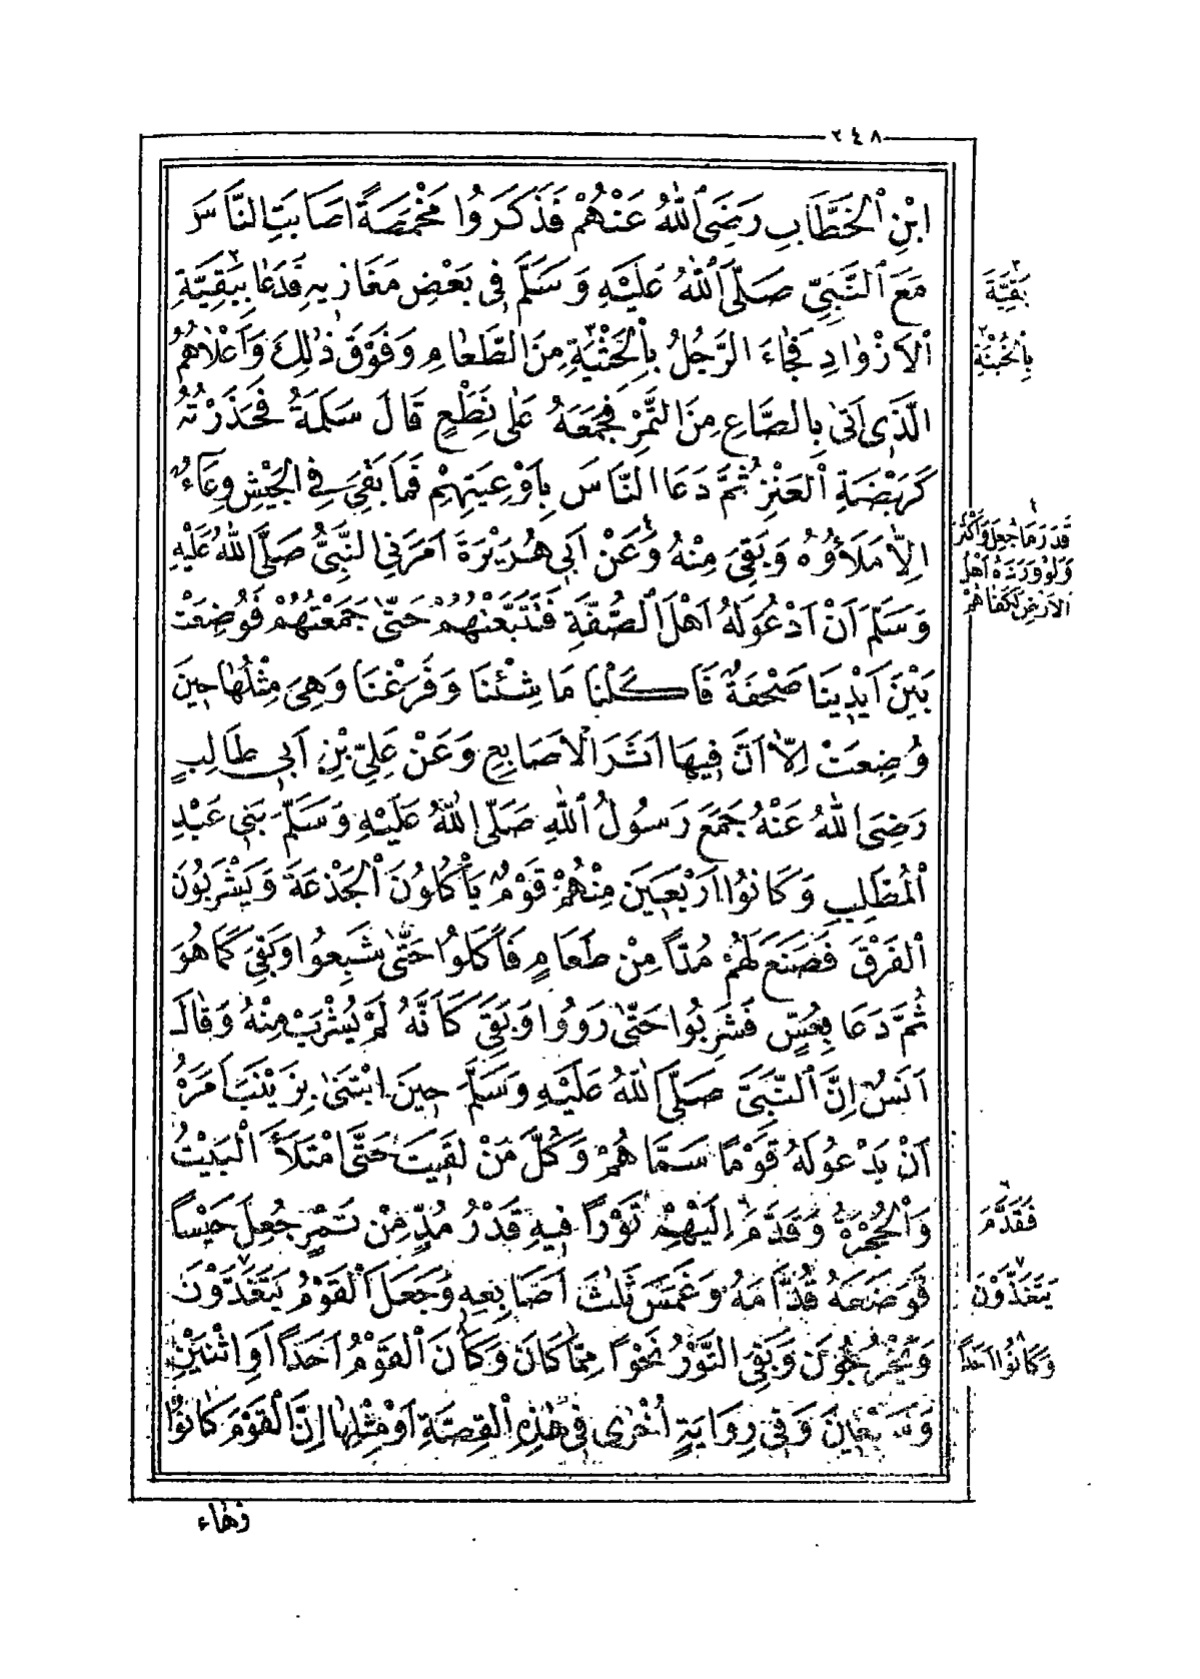 ٢٤٨
ابْنِ الْخَطَّابِ رَضِيَ اللهُ عَنْهُمْ فَذَكَرُوا مَخْمَصَةً اَصَابَتِ النَّاسَ
مَعَ النَّبِيِّ صَلَّى اللهُ عَلَيْهِ وَسَلَّمَ فِي بَعْضِ مَغَازِيهِ فَدَعَا بِبَقِيَّةِ
الْاَزْوَادِ فَجَاءَ الرَّجُلُ بِالْحَثْيَةِ مِنَ الطَّعَامِ وَفَوْقَ ذٰلِكَ وَاَعْلَاهُمُ
الَّذِي اَتٰى بِالصَّاعِ مِنَ التَّمْرِ فَجَمَعَهُ عَلٰى نِطْعٍ قَالَ سَلَمَةُ فَحَذَرْتُهُ
كَرَبْضَةِ الْعَنْزِ ثُمَّ دَعَا النَّاسَ بِاَوْعِيَتِهِمْ فَمَا بَقِيَ فِي الْجَيْشِ وِعَاءٌ
اِلَّا مَلَأُوهُ وَبَقِيَ مِنْهُ ٤ وَعَنْ اَبِي هُرَيْرَةَ اَمَرَنِي النَّبِيُّ صَلَّى اللهُ عَلَيْهِ
وَسَلَّمَ اَنْ اَدْعُوَ لَهُ اَهْلَ الصُّفَّةِ فَتَتَبَّعْتُهُمْ حَتّٰى جَمَعْتُهُمْ فَوُضِعَتْ
بَيْنَ اَيْدِينَا صَحْفَةٌ فَاَكَلْنَا مَا شِئْنَا وَفَرَغْنَا وَهِيَ مِثْلُهَا حِينَ
وُضِعَتْ اِلَّا اَنَّ فِيهَا اَثَرَ الْاَصَابِعِ وَعَنْ عَلِيِّ بْنِ اَبِي طَالِبٍ
رَضِيَ اللهُ عَنْهُ جَمَعَ رَسُولُ اللهِ صَلَّى اللهُ عَلَيْهِ وَسَلَّمَ بَنِي عَبْدِ
الْمُطَّلِبِ وَكَانُوا اَرْبَعِينَ مِنْهُمْ قَوْمٌ يَأْكُلُونَ الْجَذَعَةَ وَيَشْرَبُونَ
الْفَرَقَ فَصَنَعَ لَهُمْ مُدًّا مِنْ طَعَامٍ فَاَكَلُوا حَتّٰى شَبِعُوا وَبَقِيَ كَمَا هُوَ
ثُمَّ دَعَا بِعُسٍّ فَشَرِبُوا حَتّٰى رَوُوا وَبَقِيَ كَاَنَّهُ لَمْ يُشْرَبْ مِنْهُ وَقَالَ
اَنَسٌ اِنَّ النَّبِيَّ صَلَّى اللهُ عَلَيْهِ وَسَلَّمَ حِينَ ابْتَنٰى بِزَيْنَبَ اَمَرَهُ
اَنْ يَدْعُوَ لَهُ قَوْمًا سَمَّاهُمْ وَكُلَّ مَنْ لَقِيتَ حَتَّى امْتَلَأَ الْبَيْتُ
وَالْحُجْرَةُ وَقَدَّمَ ٦ اِلَيْهِمْ تَوْرًا فِيهِ قَدْرُ مُدٍّ مِنْ تَمْرٍ جُعِلَ حَيْسًا
فَوَضَعَهُ قُدَّامَهُ وَغَمَسَ ثَلٰثَ اَصَابِعِهِ وَجَعَلَ الْقَوْمُ يَتَغَدَّوْنَ ٧
وَيَخْرُجُونَ وَبَقِيَ التَّوْرُ نَحْوًا مِمَّا كَانَ وَكَانَ الْقَوْمُ اَحَدًا اَوِ اثْنَيْنِ
وَسَبْعِينَ وَفِي رِوَايَةٍ اُخْرٰى فِي هٰذِهِ الْقِصَّةِ اَوْ مِثْلِهَا اِنَّ الْقَوْمَ كَانُوا
زُهَاءَ
٢
بَقِيَّةَ
٣
بِالْحَثْيَةِ
٤
قَدَرَ مَا جُعِلَ وَاَكْثَرُ
وَلَوْ وَرَدَهُ اَهْلُ
الْاَرْضِ لَكَفَاهُمْ
٦
فَقَدَّمَ
٧
يَتَغَذَّوْنَ
٨
وَكَانُوا اَحَدًا